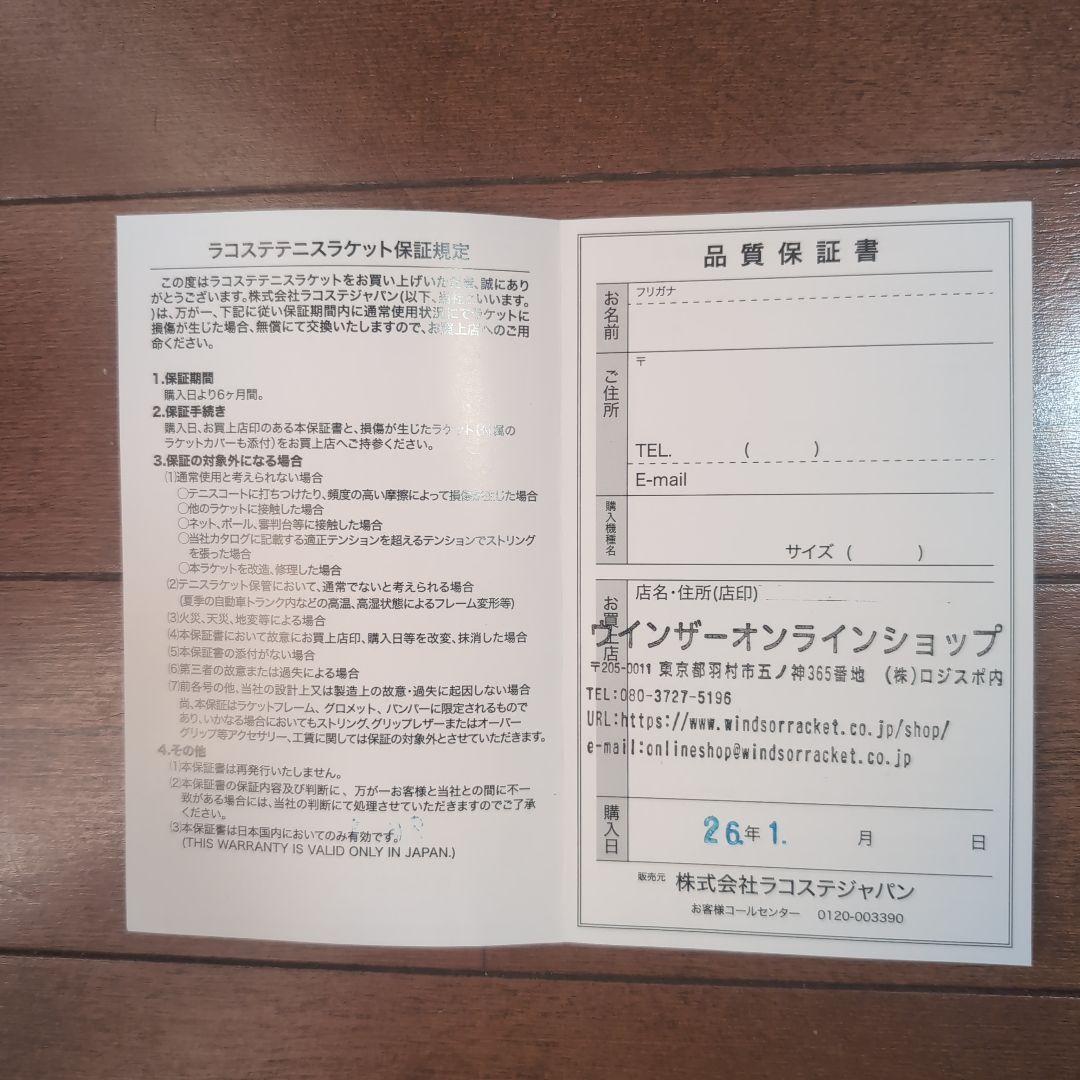 ラコステテニスラケット保証規定
この度はラコステテニスラケットをお買い上げいた 、誠にあり
がとうございます。株式会社ラコステジャパン(以下、当社といいます。
)は、万が一、下記に従い保証期間内に通常使用状況にてラケットに
損傷が生じた場合、無償にて交換いたしますので、お買上店へのご用
命ください。
1.保証期間
購入日より6ヶ月間。
2.保証手続き
購入日、お買上店印のある本保証書と、損傷が生じたラケット(付属の
ラケットカバーも添付)をお買上店へご持参ください。
3.保証の対象外になる場合
(1)通常使用と考えられない場合
○テニスコートに打ちつけたり、頻度の高い摩擦によって損傷が生じた場合
○他のラケットに接触した場合
○ネット、ポール、審判台等に接触した場合
○当社カタログに記載する適正テンションを超えるテンションでストリング
を張った場合
○本ラケットを改造、修理した場合
(2)テニスラケット保管において、通常でないと考えられる場合
(夏季の自動車トランク内などの高温、高湿状態によるフレーム変形等)
(3)火災、天災、地変等による場合
(4)本保証書において故意にお買上店印、購入日等を改変、抹消した場合
(5)本保証書の添付がない場合
(6)第三者の故意または過失による場合
(7)前各号の他、当社の設計上又は製造上の故意・過失に起因しない場合
尚、本保証はラケットフレーム、グロメット、バンパーに限定されるもので
あり、いかなる場合においてもストリング、グリップレザーまたはオーバー
グリップ等アクセサリー、工賃に関しては保証の対象外とさせていただきます。
4.その他
(1)本保証書は再発行いたしません。
(2)本保証書の保証内容及び判断に、万が一お客様と当社との間に不一
致がある場合には、当社の判断にて処理させていただきますのでご了承
ください。
(3)本保証書は日本国内においてのみ有効です。
(THIS WARRANTY IS VALID ONLY IN JAPAN.)
品質保証書
お名前
フリガナ
ご住所
〒
TEL. ( )
E-mail
購入機種名
サイズ ( )
お買上店
店名・住所(店印)
ウインザーオンラインショップ
〒205-0011 東京都羽村市五ノ神365番地 (株)ロジスポ内
TEL:080-3727-5196
URL:https://www.windsorracket.co.jp/shop/
e-mail:onlineshop@windsorracket.co.jp
購入日
26.年 1. 月 日
販売元 株式会社ラコステジャパン
お客様コールセンター 0120-003390